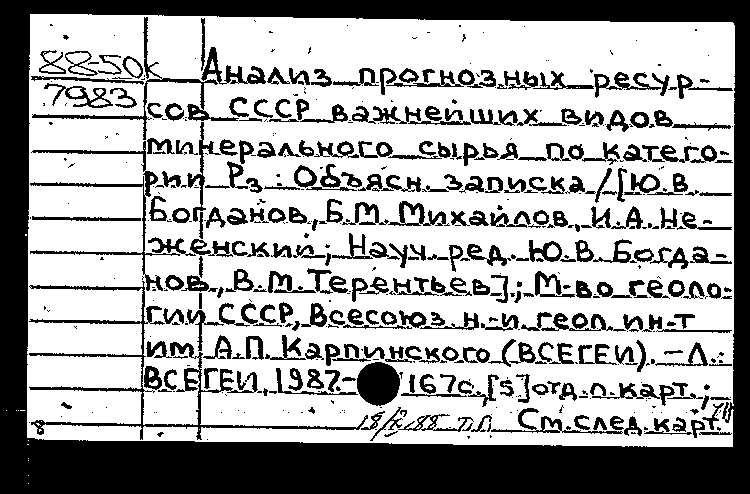 88-50к Анализ прогнозных ресур-
7983 сов СССР важнейших видов
минерального сырья по катего-
рии P₃ : Объясн. записка / [Ю.В.
Богданов, Б.М. Михайлов, И.А. Не-
женский; Науч. ред. Ю.В. Богда-
нов, В.М. Терентьев]; М-во геоло-
гии СССР, Всесоюз. н.-и. геол. ин-т
им А.П. Карпинского (ВСЕГЕИ). – Л.:
ВСЕГЕИ, 1987.– 167с., [5] отд. л. карт.;
8 См. след. карт.